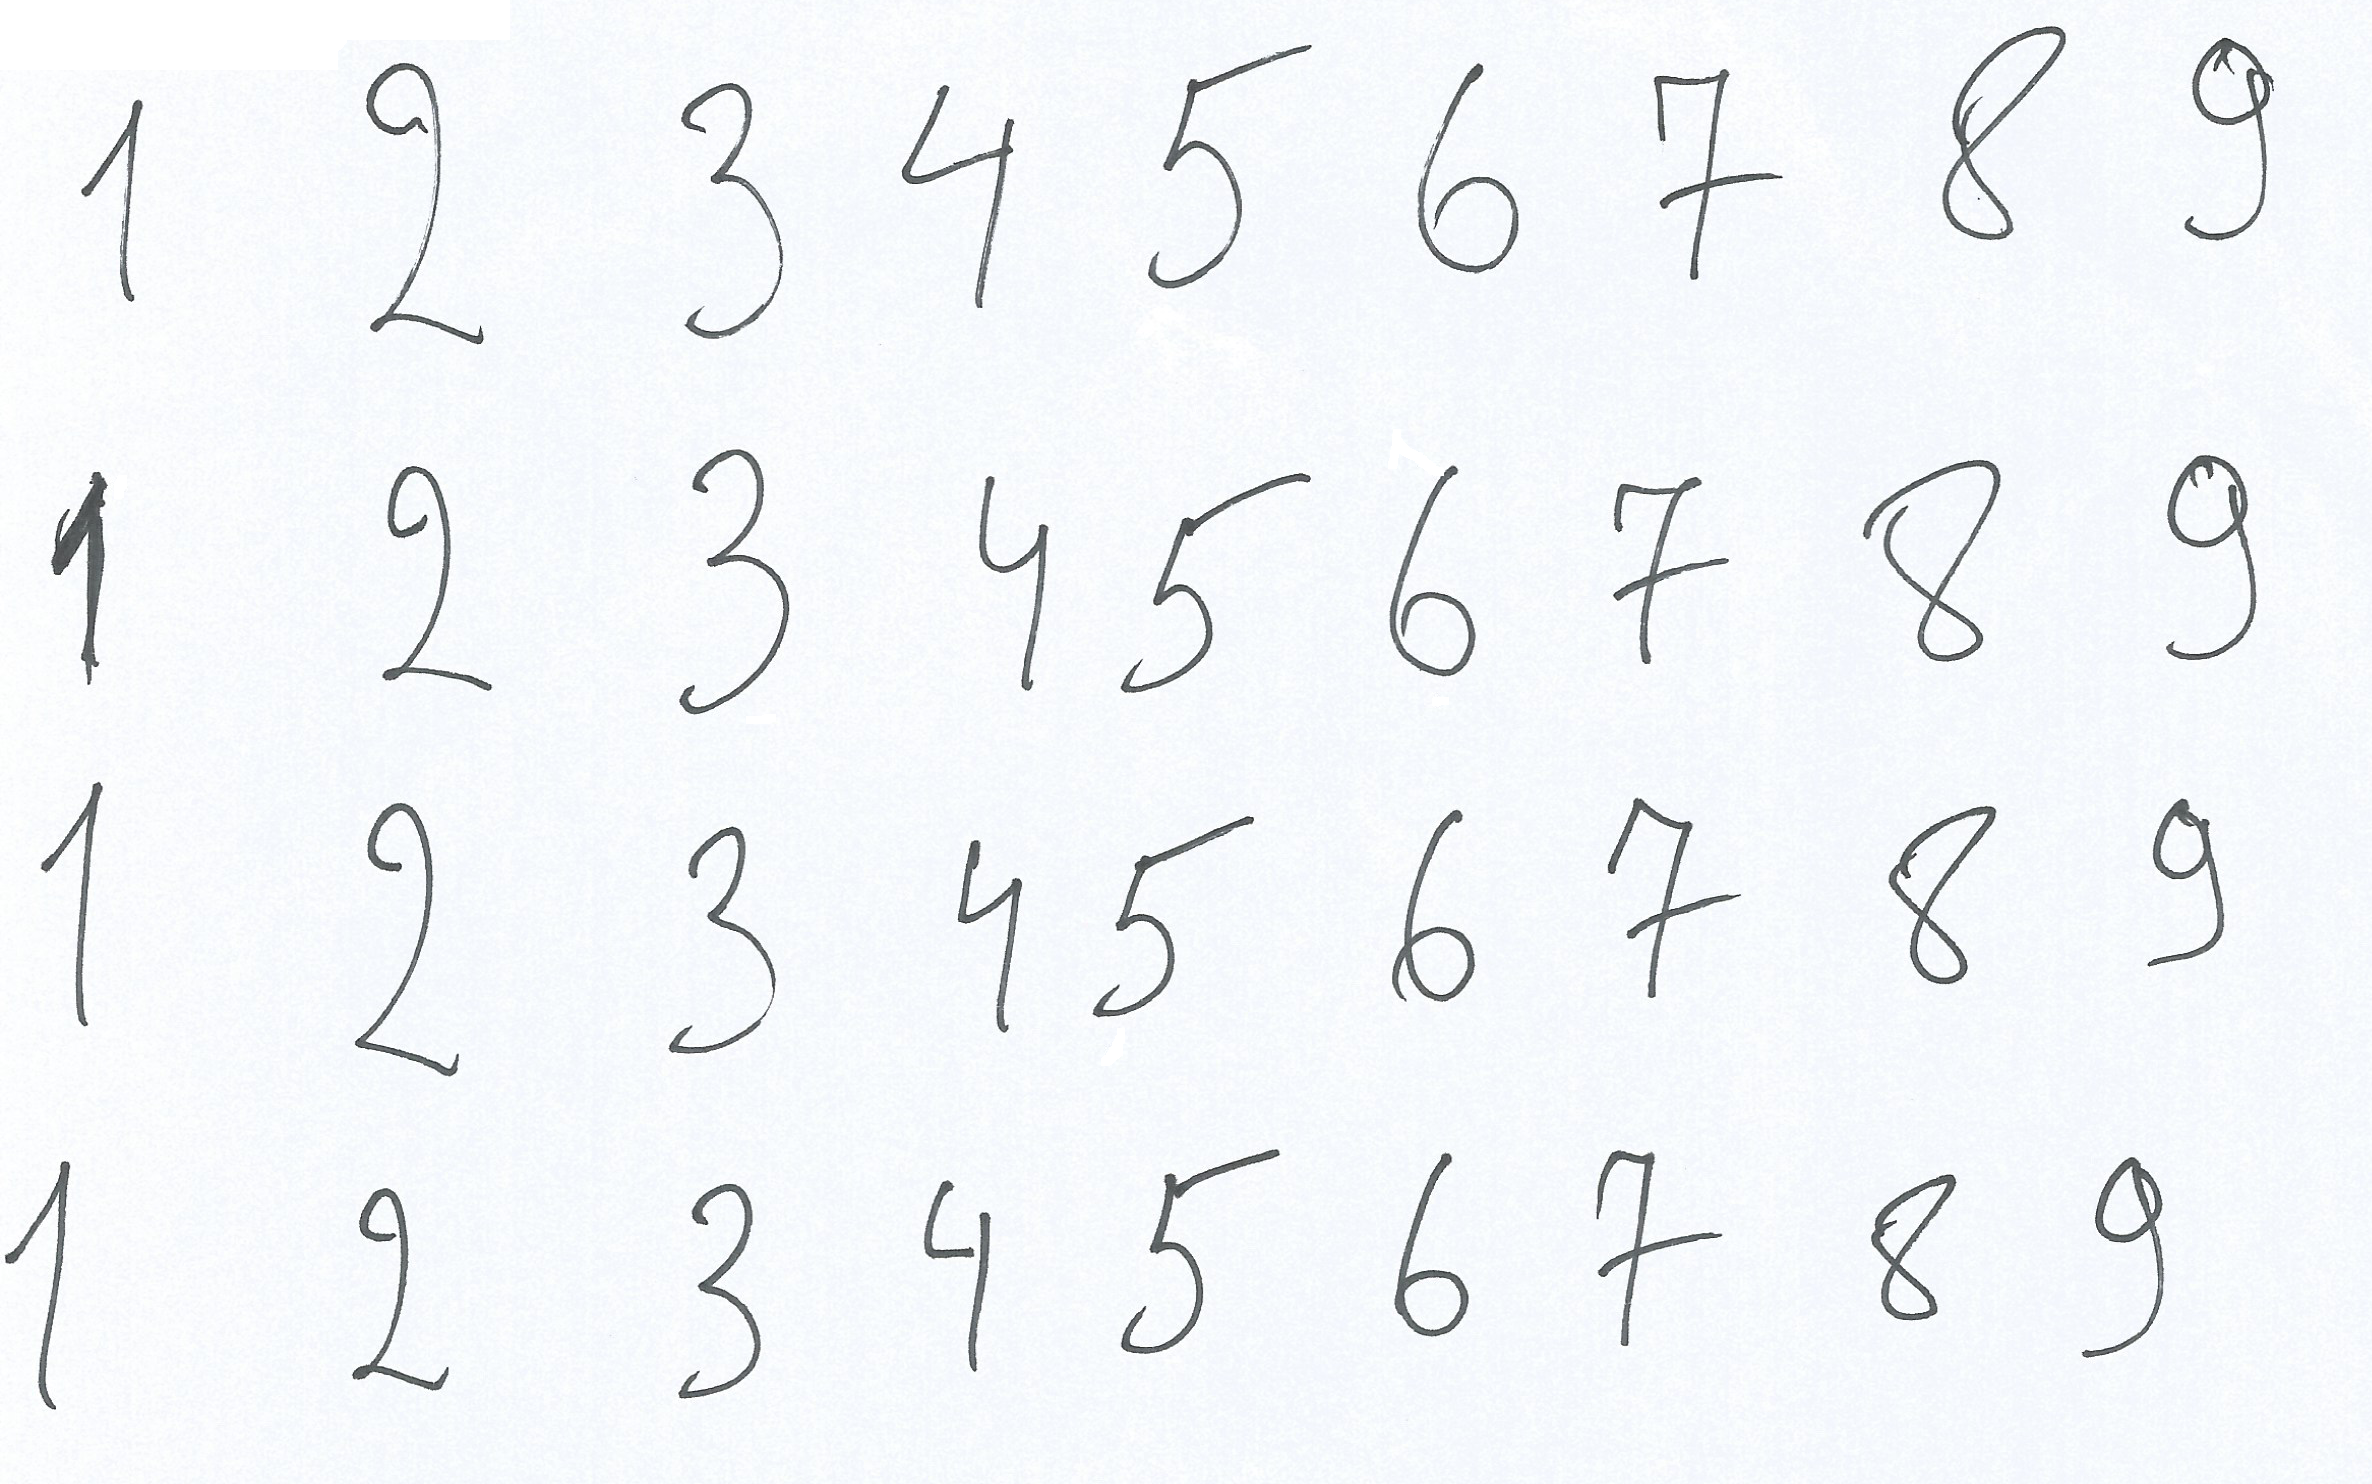 1 2 3 4 5 6 7 8 9
1 2 3 4 5 6 7 8 9
1 2 3 4 5 6 7 8 9
1 2 3 4 5 6 7 8 9